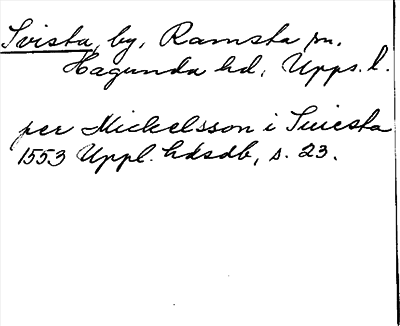 Svista, by, Ramsta sn.
Hagunda hd, Upps. l.
per Mickelsson i Suiesta
1553 Uppl. hdsdb, s. 23.